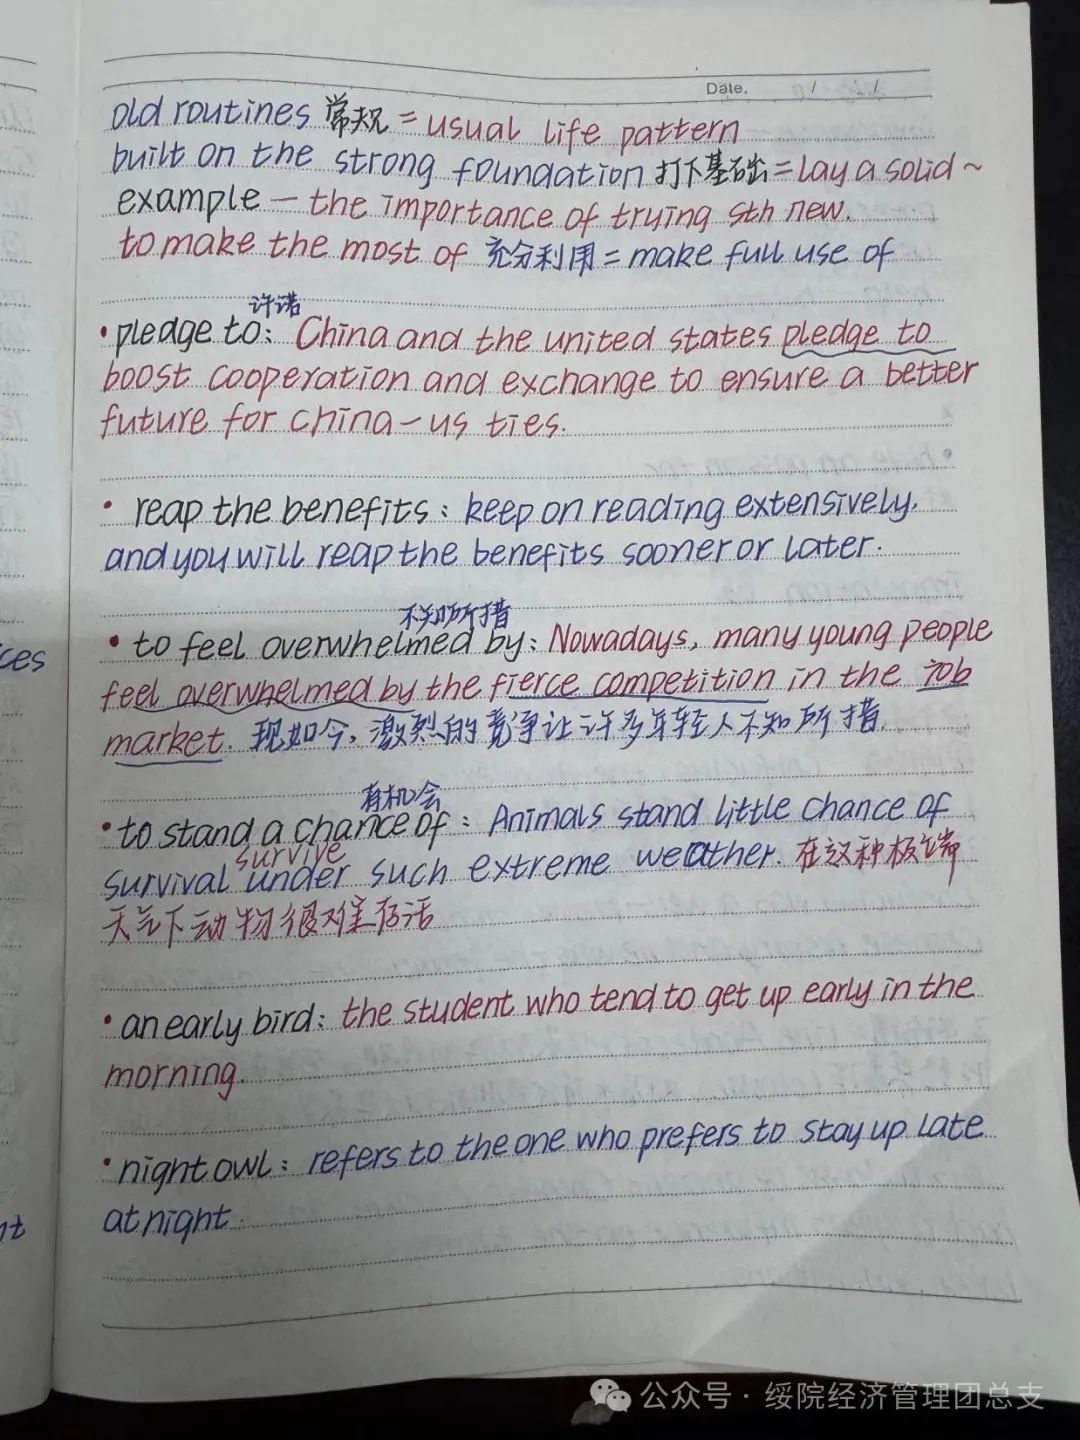 Date. / /
old routines 常规 = usual life pattern
built on the strong foundation 打下基础 = lay a solid ~
example — the importance of trying sth new.
to make the most of 充分利用 = make full use of
许诺
• pledge to: China and the united states pledge to
boost cooperation and exchange to ensure a better
future for china-us ties.
• reap the benefits: keep on reading extensively,
and you will reap the benefits sooner or later.
不知所措
• to feel overwhelmed by: Nowadays, many young people
feel overwhelmed by the fierce competition in the job
market. 现如今, 激烈的竞争让许多年轻人不知所措.
有机会
• to stand a chance of: Animals stand little chance of
survive
survival under such extreme weather. 在这种极端
天气下动物很难存活
• an early bird: the student who tend to get up early in the
morning.
• night owl: refers to the one who prefers to stay up late
at night.
ices
nt
公众号 · 绥院经济管理团总支